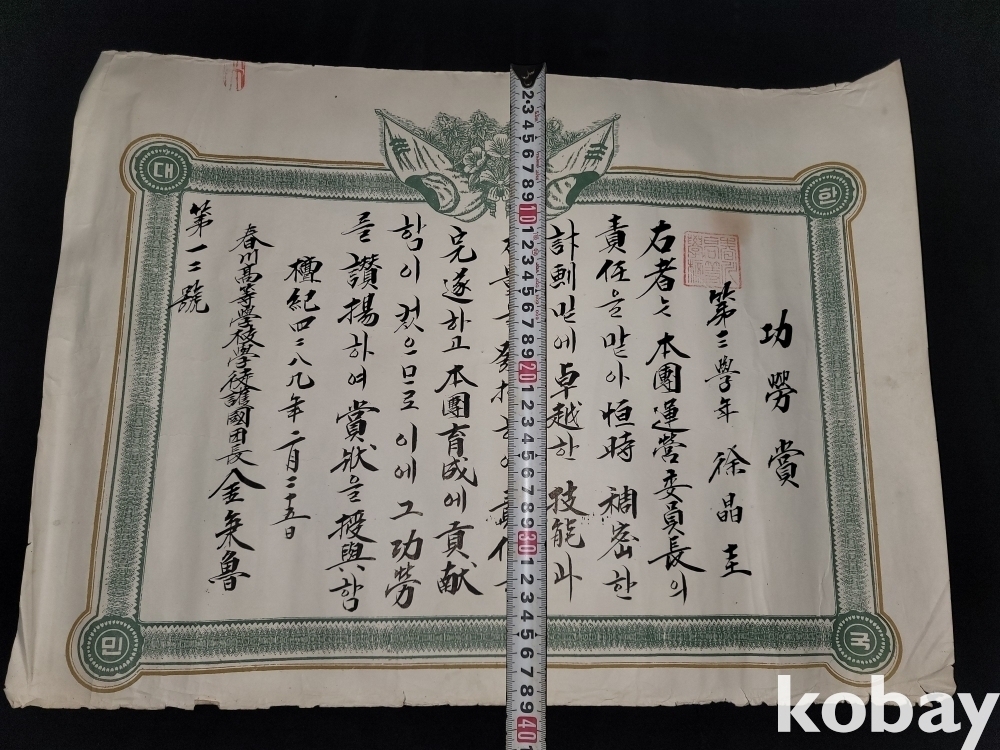 대
한
민
국
功勞賞
第三學年 徐晶圭
右者는 本團運營委員長의
責任을 맡아 恒時 稠密한
計劃밑에 卓越한 技能과
完遂하고 本團育成에 貢献
함이 컸으므로 이에 그 功勞
를 讃揚하여 賞狀을 授與함
檀紀四二八九年 二月二十五日
春川高等學校學徒護國団長 金秉魯
第一二號
kobay